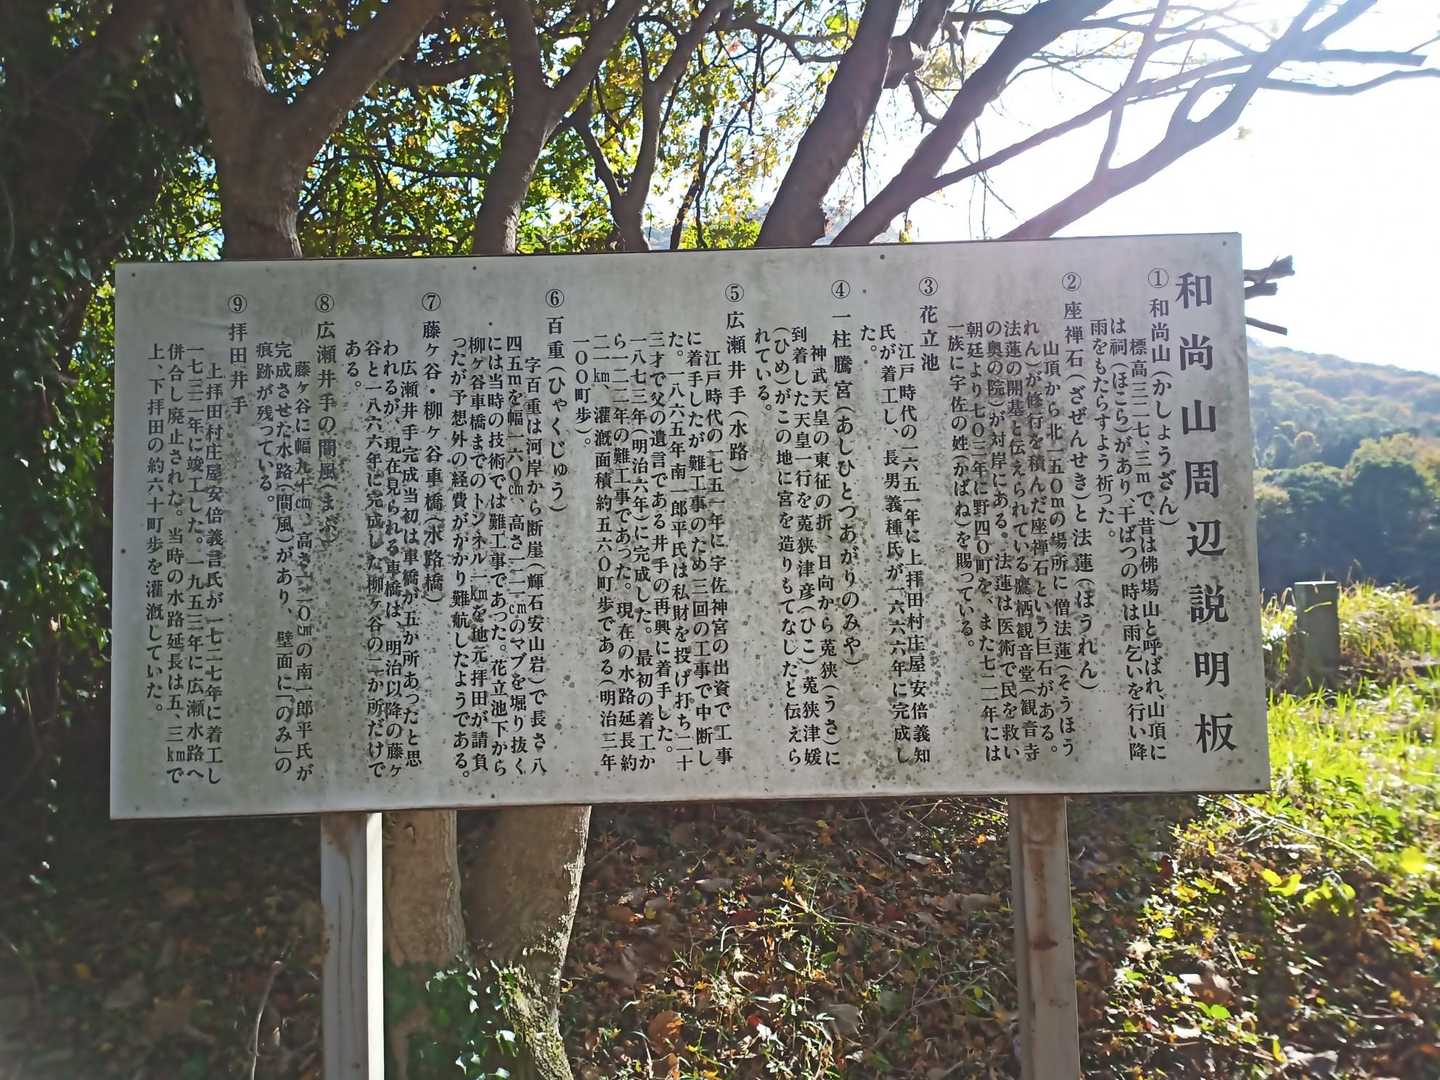 和尚山周辺説明板
①和尚山(かしょうざん)
標高三二七、三mで、昔は佛場山と呼ばれ、山頂に
は祠(ほこら)があり、干ばつの時は雨乞いを行い降
雨をもたらすよう祈った。
②座禅石(ざぜんせき)と法蓮(ほうれん)
山頂から北一五〇mの場所に僧法蓮(そうほう
れん)が修行を積んだ座禅石という巨石がある。
法蓮の開基と伝えられている鷹栖観音堂(観音寺
の奥の院)が対岸にある。法蓮は医術で民を救い
朝廷より七〇三年に野四〇町を、また七二一年には
一族に宇佐の姓(かばね)を賜っている。
③花立池
江戸時代の一六五一年に上拝田村庄屋安倍義知
氏が着工し、長男義種氏が一六六六年に完成し
た。
④一柱騰宮(あしひとつあがりのみや)
神武天皇の東征の折、日向から菟狭(うさ)に
到着した天皇一行を菟狭津彦(ひこ)菟狭津媛
(ひめ)がこの地に宮を造りもてなしたと伝えら
れている。
⑤広瀬井手(水路)
江戸時代の一七五一年に宇佐神宮の出資で工事
に着手したが難工事のため三回の工事で中断し
た。一八六五年南一郎平氏は私財を投げ打ち二十
三才で父の遺言である井手の再興に着手した。
一八七三年(明治六年)に完成した。最初の着工か
ら一二二年の難工事であった。現在の水路延長約
二一㎞、灌漑面積約五六〇町歩である(明治三年
一〇〇町歩)。
⑥百重(ひゃくじゅう)
字百重は河岸から断崖(輝石安山岩)で長さ八
四五mを幅一六〇㎝、高さ二一二㎝のマブを堀り抜く
には当時の技術では難工事であった。花立池下から
柳ヶ谷車橋までのトンネル一㎞を地元拝田が請負
ったが予想外の経費がかかり難航したようである。
⑦藤ヶ谷・柳ヶ谷車橋(水路橋)
広瀬井手完成当初は車橋が五か所あったと思
われるが、現在見られる車橋は、明治以降の藤ヶ
谷と一八六六年に完成した柳ヶ谷の二か所だけで
ある。
⑧広瀬井手の間風(まぶ)
藤ヶ谷に幅九十㎝、高さ二一〇㎝の南一郎平氏が
完成させた水路(間風)があり、壁面に「のみ」の
痕跡が残っている。
⑨拝田井手
上拝田村庄屋安倍義言氏が一七二七年に着工し
一七三一年に竣工した。一九五三年に広瀬水路へ
併合し廃止された。当時の水路延長は五、三㎞で
上、下拝田の約六十町歩を灌漑していた。